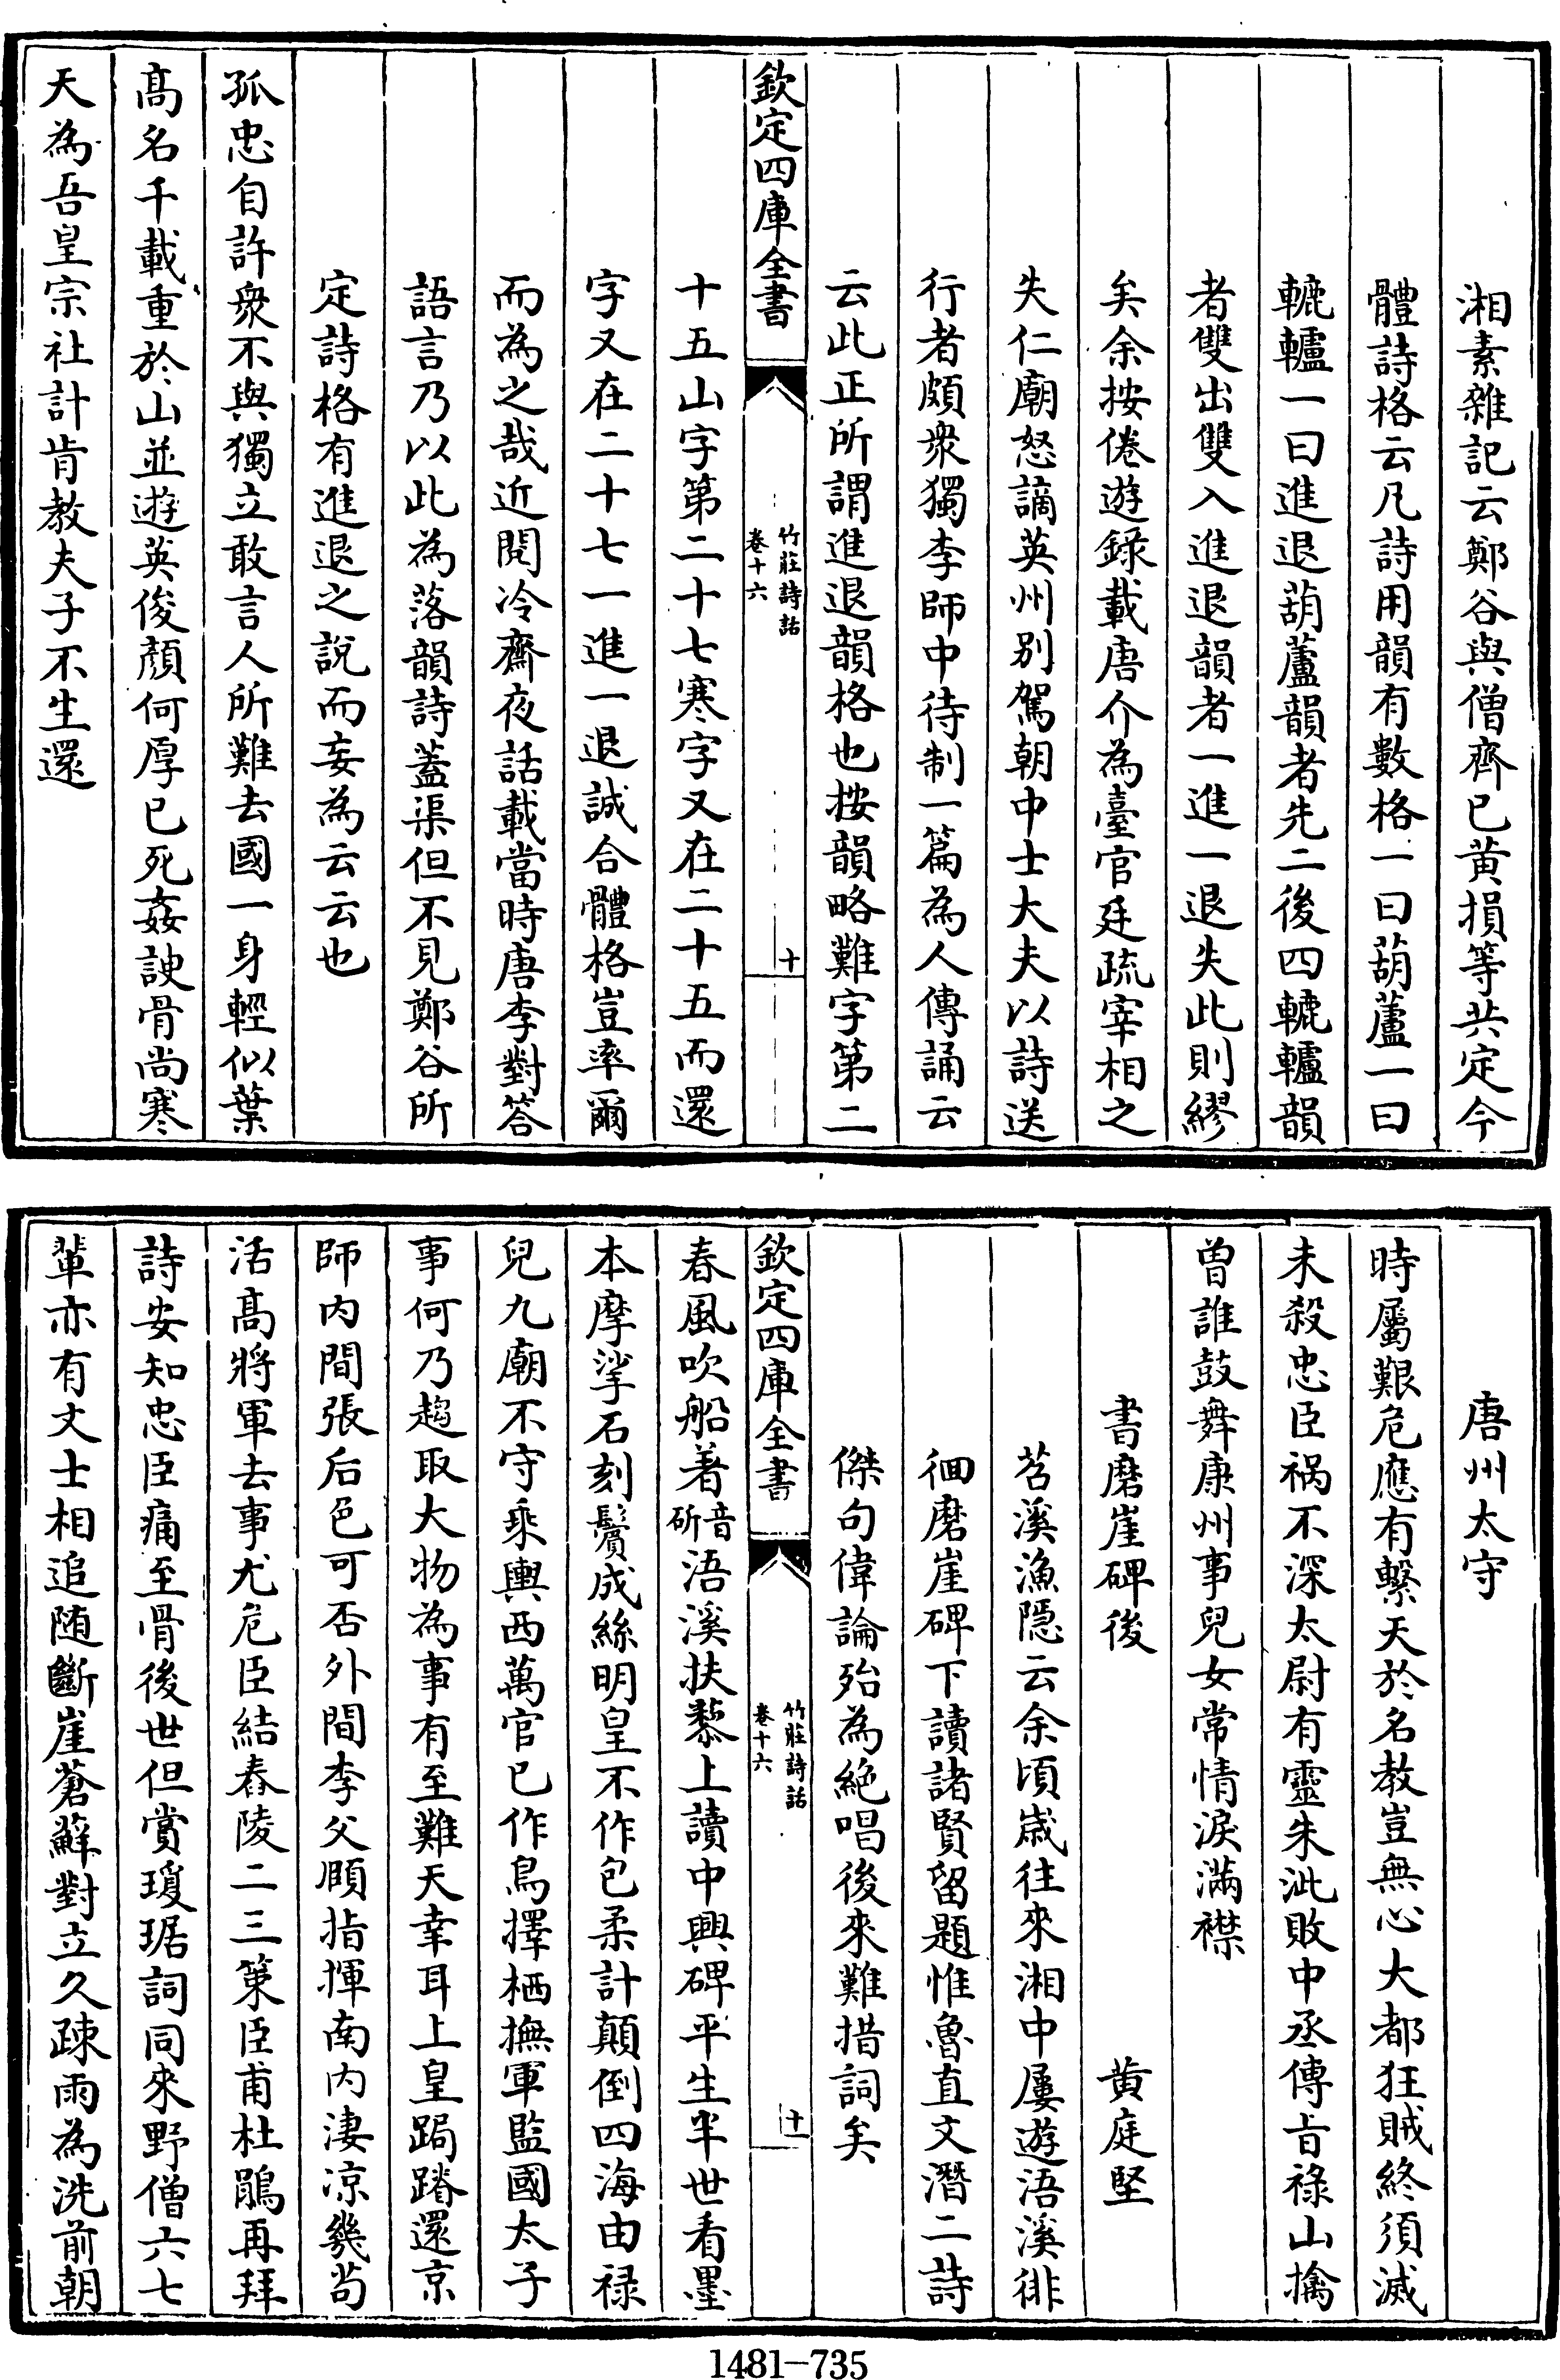 湘素雜記云鄭谷與僧齊已黄損等共定今
體詩格云凡詩用韻有數格一曰葫蘆一曰
轆轤一曰進退葫蘆韻者先二後四轆轤韻
者雙出雙入進退韻者一進一退失此則繆
矣余按倦遊錄載唐介為臺官廷疏宰相之
失仁廟怒謫英州别駕朝中士大夫以詩送
行者頗衆獨李師中待制一篇為人傳誦云
云此正所謂進退韻格也按韻略難字第二
欽定四庫全書
竹莊詩話
卷十六
十
十五山字第二十七寒字又在二十五而還
字又在二十七一進一退誠合體格豈率爾
而為之哉近閱冷齋夜話載當時唐李對答
語言乃以此為落韻詩蓋渠但不見鄭谷所
定詩格有進退之說而妄為云云也
孤忠自許衆不與獨立敢言人所難去國一身輕似葉
髙名千載重於山並遊英俊顔何厚已死姦諛骨尚寒
天為吾皇宗社計肯教夫子不生還
唐州太守
時屬艱危應有繫天於名教豈無心大都狂賊終須滅
未殺忠臣禍不深太尉有靈朱泚敗中丞傳旨祿山擒
曽誰鼓舞康州事兒女常情淚滿襟
書磨崖碑後
黄庭堅
苕溪漁隠云余頃歳往來湘中屢遊浯溪徘
徊磨崖碑下讀諸賢留題惟魯直文潛二詩
傑句偉論殆為絶唱後來難措詞矣
欽定四庫全書
竹莊詩話
卷十六
十一
春風吹船著音斫浯溪扶藜上讀中興碑平生半世看墨
本摩挲石刻鬢成絲明皇不作包柔計顛倒四海由禄
兒九廟不守乘輿西萬官已作鳥擇栖撫軍監國太子
事何乃趨取大物為事有至難天幸耳上皇跼蹐還京
師内間張后色可否外間李父頤指揮南内凄凉幾茍
活髙將軍去事尤危臣結舂陵二三策臣甫杜鵑再拜
詩安知忠臣痛至骨後世但賞瓊琚詞同來野僧六七
輩亦有文士相追随斷崖蒼蘚對立久疎雨為洗前朝
1481-735